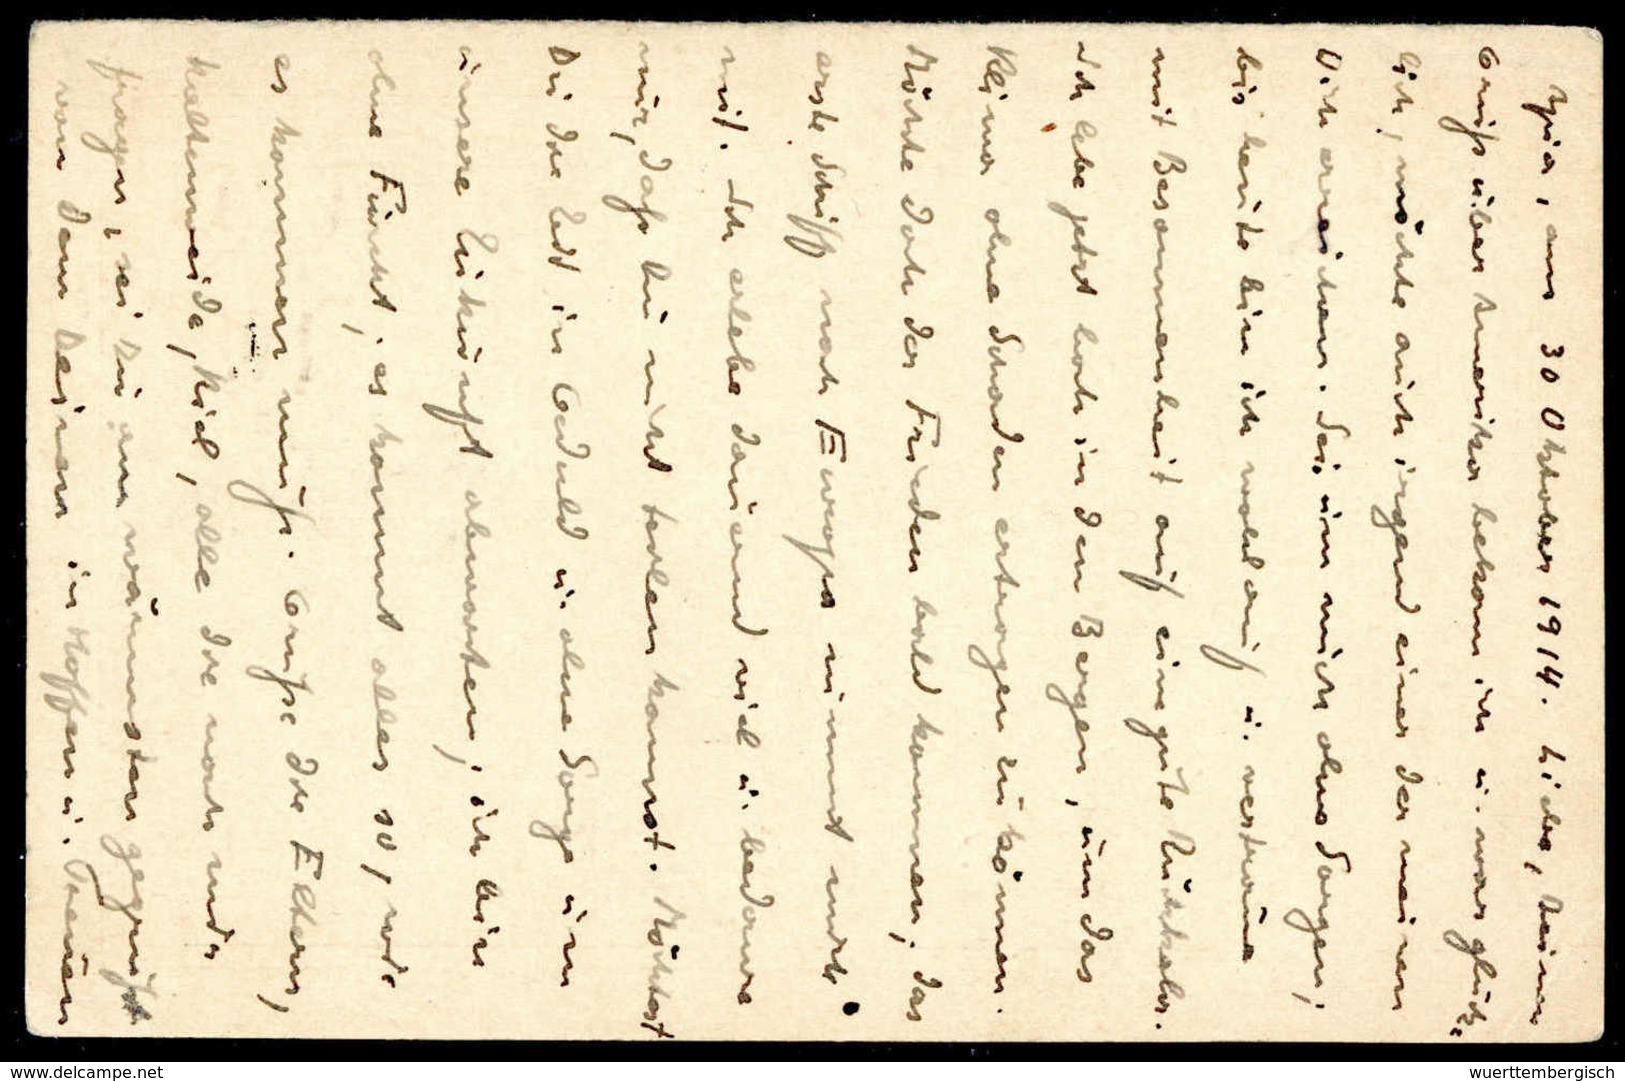 Apia, am 30 Oktober 1914. Liebe, Deinen
Gruss über Amerika bekam ich u. war glück-
lich, möchte auch irgend einer der meinen
Dich erreichen. Sei um mich ohne Sorgen;
bis heute bin ich wohlauf u. vertraue
mit Besonnenheit auf eine gute Rückkehr.
Ich lebe jetzt hoch in den Bergen, um das
Klima ohne Schaden ertragen zu können.
Möchte doch der Frieden bald kommen, das
erste Schiff nach Europa nimmt mich
mit. Ich erlebe dauernd viel u. bedaure
nur, dass Du nicht teilen kannst. Möchtest
Du die Zeit in Geduld u. ohne Sorge um
unsere Zukunft abwarten, ich bin
ohne Furcht, es kommt alles so, wie
es kommen muss. Grüsse die Eltern,
Kaltenweide, Kiel, alle die nach mir
fragen, sei Du am wärmsten gegrüsst
von Dem Deinen in Hoffen u. Treuen
www.delcampe.net
wuerttembergisch